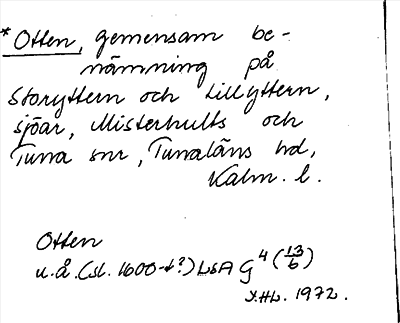 *Otten, gemensam be-
nämning på
Storyttern och Lillyttern,
sjöar, Misterhults och
Tuna snr, Tunaläns hd,
Kalm. l.
Otten
u.å. (sl. 1600-t?) LSA G4 (13/6)
1972.